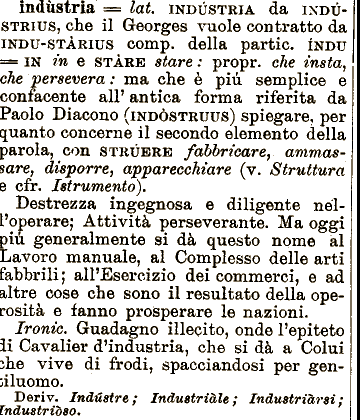 indùstria = lat. INDÚSTRIA da INDÚ-
STRIUS, che il Georges vuole contratto da
INDU-STÀRIUS comp. della partic. ÍNDU
= IN in e STÀRE stare: propr. che insta,
che persevera: ma che è più semplice e
confacente all'antica forma riferita da
Paolo Diacono (INDÒSTRUUS) spiegare, per
quanto concerne il secondo elemento della
parola, con STRÚERE fabbricare, ammas-
sare, disporre, apparecchiare (v. Struttura
e cfr. Istrumento).
Destrezza ingegnosa e diligente nel-
l'operare; Attività perseverante. Ma oggi
più generalmente si dà questo nome al
Lavoro manuale, al Complesso delle arti
fabbrili; all'Esercizio dei commerci, e ad
altre cose che sono il resultato della ope-
rosità e fanno prosperare le nazioni.
Ironic. Guadagno illecito, onde l'epiteto
di Cavalier d'industria, che si dà a Colui
che vive di frodi, spacciandosi per gen-
tiluomo.
Deriv. Indústre; Industriàle; Industriàrsi;
Industriòso.